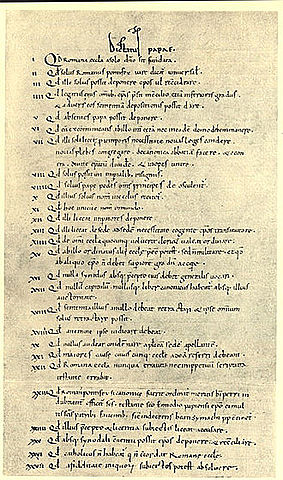 Dictatus papae.
I Qd Romana eccla a solo dno sit fundata.
II Qd solus Romanus pontifex iure dicat universal.
III Qd ille solus possit deponere epos vel reconciliare.
IIII Qd legatus eius omnib. epis presit in concilio etiam inferioris gradus
& adversus eos sententiam depositionis possit dare.
V Qd absentes papa possit deponere.
VI Qd cum excommunicatis ab illo inter cetera nec in eade domo debem manere.
VII Qd illi soli licet pro temporis necessitate novas leges condere
novas plebes congregare. de canonica abbatiam facere. & e con
tra. divite epatum dividere. & inopes unire.
VIII Qd solus possit uti imperialib. insigniis.
VIIII Qd solius papae pedes oms principes deosculent.
X Qd illius solius nom in ecclesiis recitet.
XI Qd hoc unicu nom in mundo.
XII Qd illi liceat imperatores deponere.
XIII Qd illi liceat de sede ad sede necessitate cogente epos transmutare.
XIIII Qd de omi eccla quocunq voluerit clericu valeat ordinare.
XV Qd ab illo ordinatus alii eccle pee potest. sed n militare. et qd
ab aliquo epo n debet superiore gradu accipe.
XVI Qd nulla synodus absq precepto eius debet generalis vocari.
XVII Qd nullu capitulu. nullusq liber canonicus habeat absq illius
auctoritate.
XVIII Qd sententia illius a nullo debeat retractari. & ipse omniu
solus retractare possit.
XVIIII Qd a nemine ipse iudicari debeat.
XX Qd nullus audeat condemnare aplica sede apellante.
XXI Qd maiores cause cuiuscunq eccle ad ea referri debeant.
XXII Qd Romana eccla nunqua erravit nec inppetuu scriptura
testante errabit.
XXIII Qd Romanus pontifex si canonice fuerit ordinatus meritis bi petri in
dubitanter efficit scs. testante sco Ennodio papiensi epo ei mul
tis scis patrib. faventib. sicut in decretis bi Symachi pp continet.
XXIIII Qd illius precepto & licentia subiectis liceat accusare.
XXV Qd absq synodali conventu possit epos deponere & reconciliare.
XXVI Qd catholicus n habeat q n concordat Romane eccle.
XXVII Qd a fidelitate iniquoru subiectos potest absolvere.